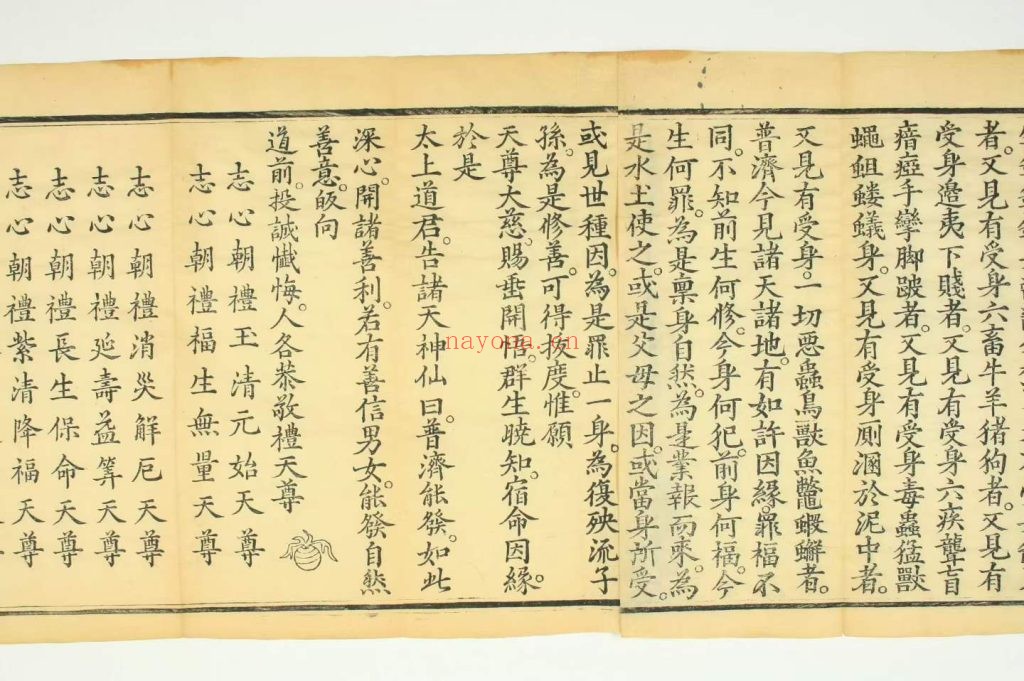 者。又見有受身六畜牛羊猪狗者。又見有
受身邉夷下賤者。又見有受身六疾聾盲
瘖瘂手攣脚跛者。又見有受身毒蟲猛獸
蠅蛆螻蟻身。又見有受身厠溷於泥中者。
又見有受身。一切惡蟲鳥獸魚鼈蝦蠏者。
普濟今見諸天諸地。有如許因緣。罪福不
同。不知前生何修。今身何犯。前身何福。今
生何罪。為是禀身自然。為是業報而來。為
是水土使之。或是父母之因。或當身所受。
或見世種因。為是罪止一身。為復殃流子
孫。為是修善。可得拔度。惟願
天尊大慈。賜垂開悟。群生曉知。宿命因緣。
於是
太上道君。告諸天神仙曰。普濟能發。如此
深心。開諸善利。若有善信男女。能發自然
善意。皈向
道前。投誠懺悔。人各恭敬禮天尊
志心朝禮玉清元始天尊
志心朝禮福生無量天尊
志心朝禮消災解厄天尊
志心朝禮延壽益筭天尊
志心朝禮長生保命天尊
志心朝禮紫清降福天尊
nayona.cn